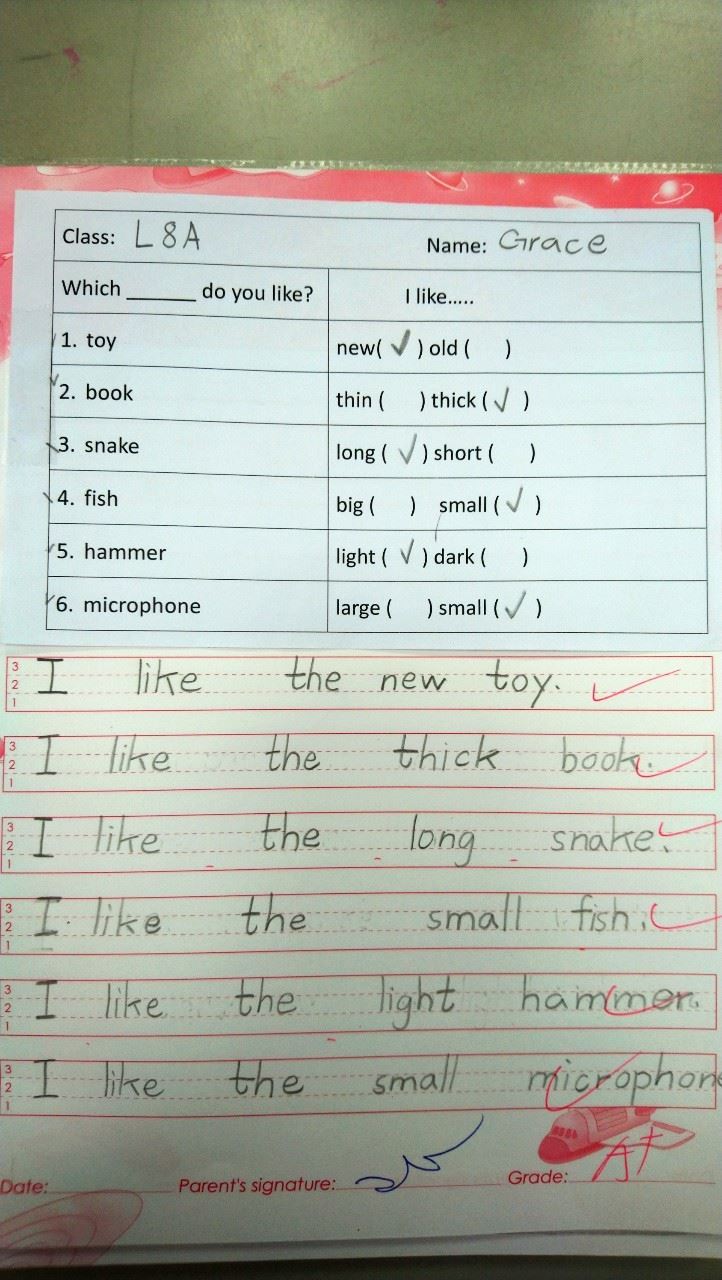 Class: L8A Name: Grace
Which ______ do you like? I like.....
1. toy new( ✓ ) old ( )
2. book thin ( ) thick ( ✓ )
3. snake long ( ✓ ) short ( )
4. fish big ( ) small ( ✓ )
5. hammer light ( ✓ ) dark ( )
6. microphone large ( ) small ( ✓ )
3 2 1 I like the new toy.
3 2 1 I like the thick book.
3 2 1 I like the long snake.
3 2 1 I like the small fish.
3 2 1 I like the light hammer.
3 2 1 I like the small microphone
Date: Parent's signature: Grade: A+